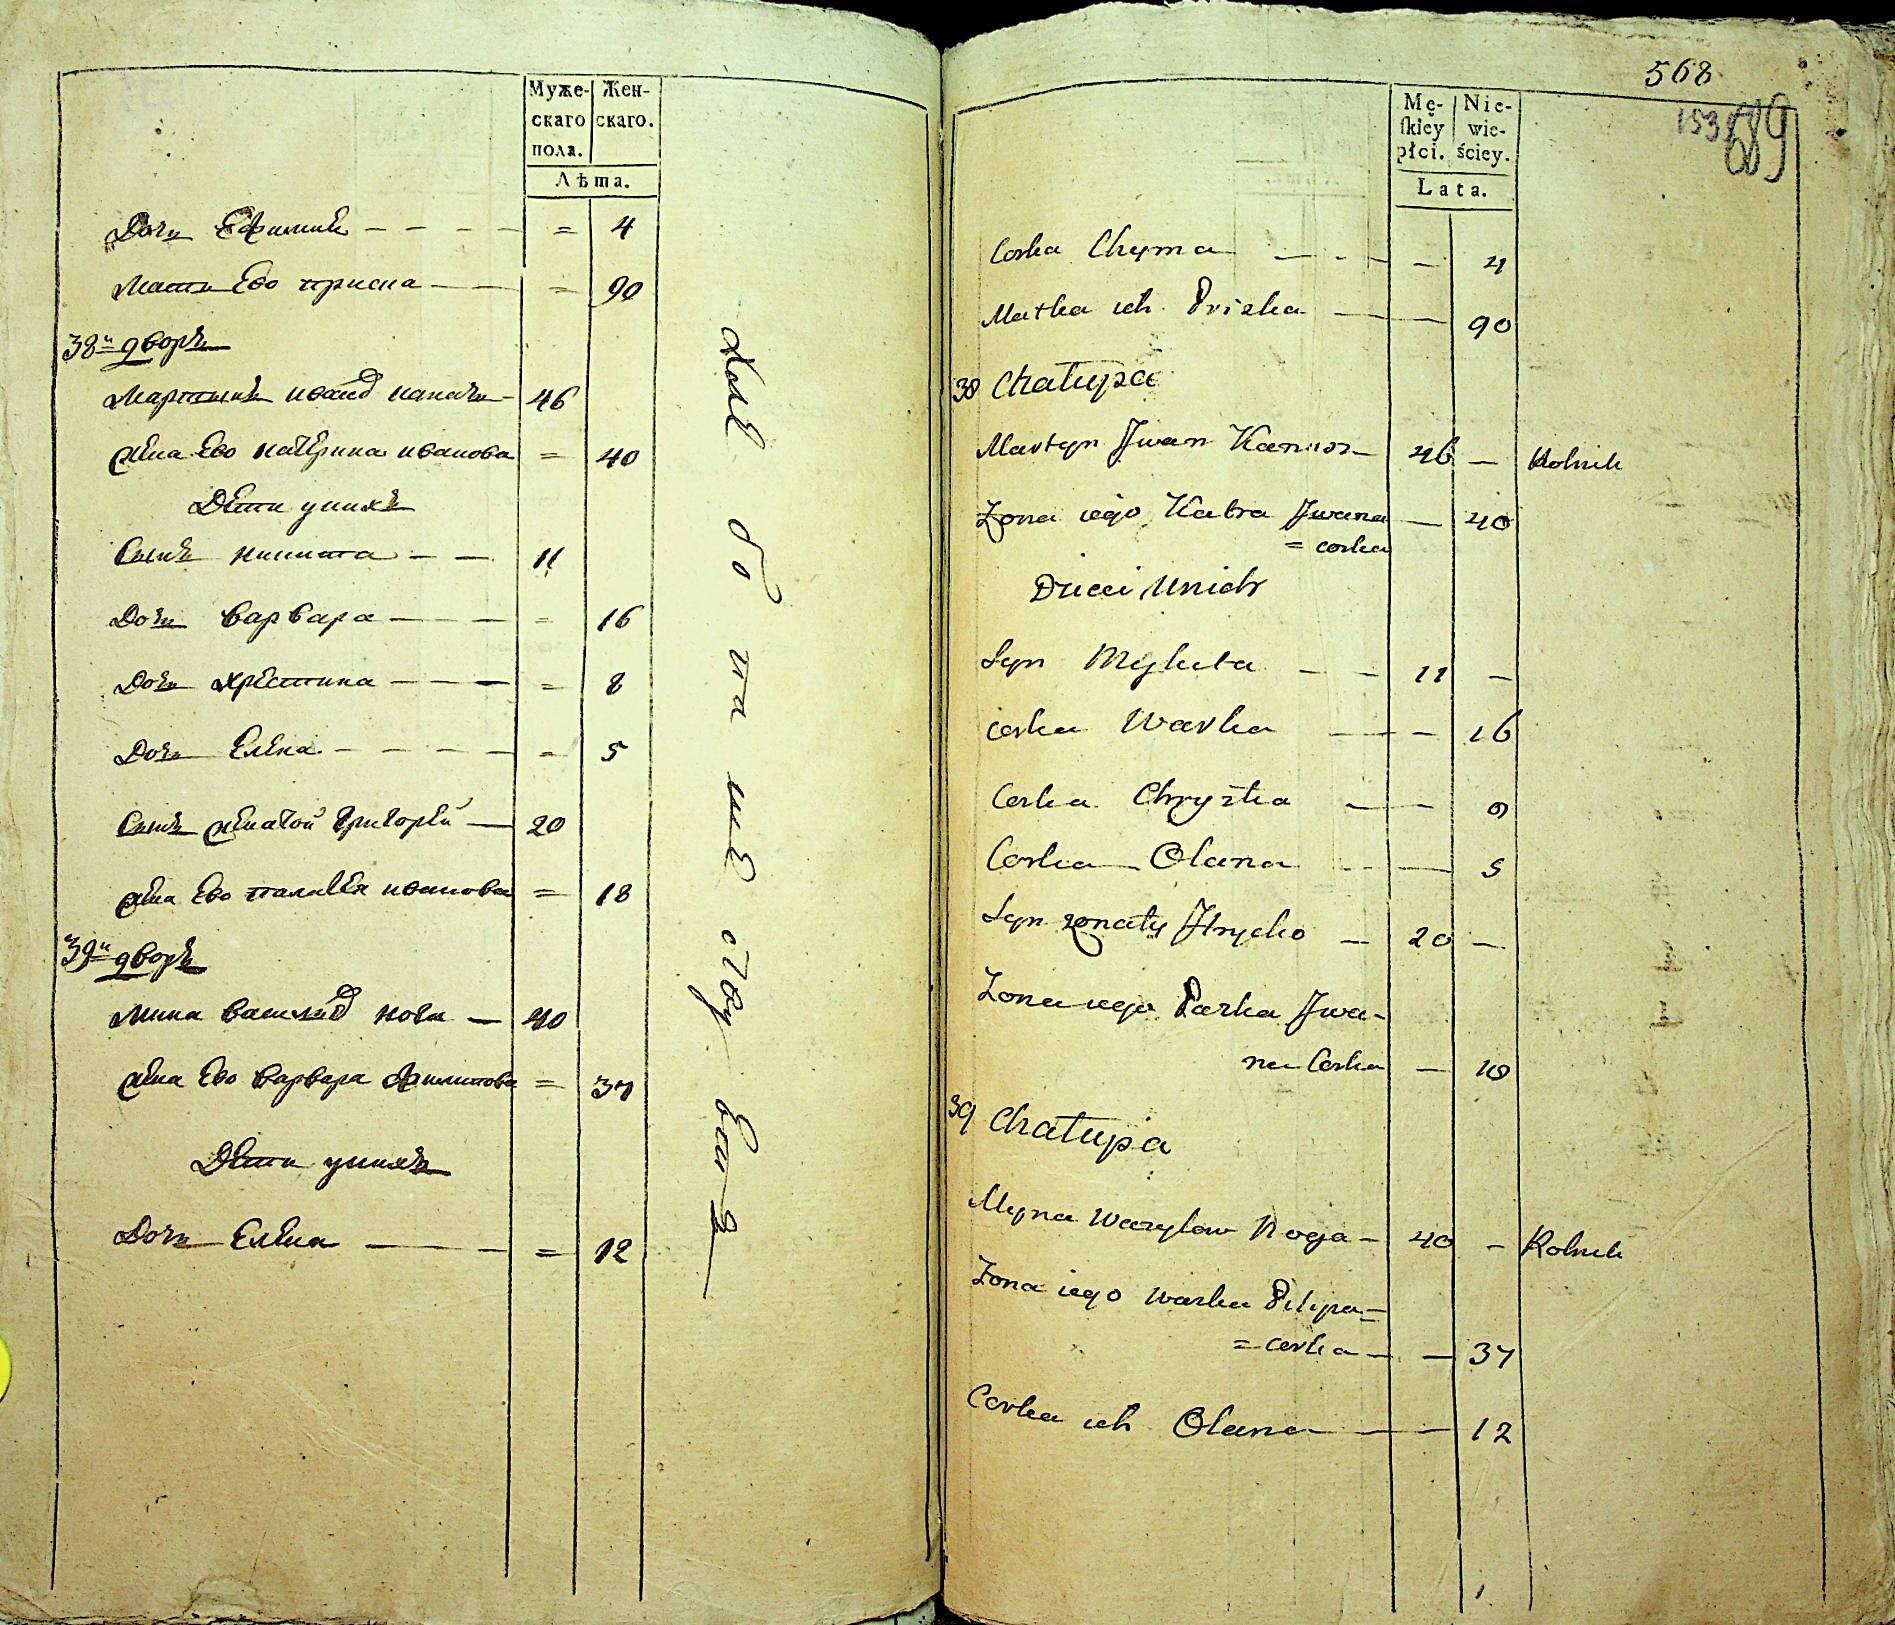 Муже- Жен-
скаго скаго.
пола.
Лѣта.
Дочь Ефимия — — — — = 4
Мать Ево приска — — = 90
38й дворъ
Мартинъ иванд — 46
жена Ево катерина иванова = 40
Дѣти унихъ
Сынъ никита — — 11
Дочь варвара — — — = 16
Дочь христина — — — = 8
Дочь Елена — — — — = 5
Сынъ женатой григорей — 20
жена Ево палагея иванова = 18
39й дворъ
мина василид нога — 40
жена Ево варвара филипова = 37
Дѣти унихъ
Дочь Елена — — — = 12
хлебопашествують
568
153
689
Mę- Nie-
skiey wie-
płci. ściey.
Lata.
Corka Chyma — - - — — 4
Matka ich Priska — — — 90
38 Chałupa
Martyn Jwan — 46 — Rolnik
Zona iego Katra Jwana — 40
= corka
Dzieci Unich
Syn Mykita — — 11 —
corka Warka — — — 16
Corka Chryzka — — 8
Corka Olana — — 5
Syn zonaty Hrycko — 20 —
Zona iego Parka Jwa-
na Corka — 18
39 Chałupa
Myna Wazylow Noga — 40 — Rolnik
Zona iego warka Pilipa =
= corka — — 37
Corka ich Olana — — 12